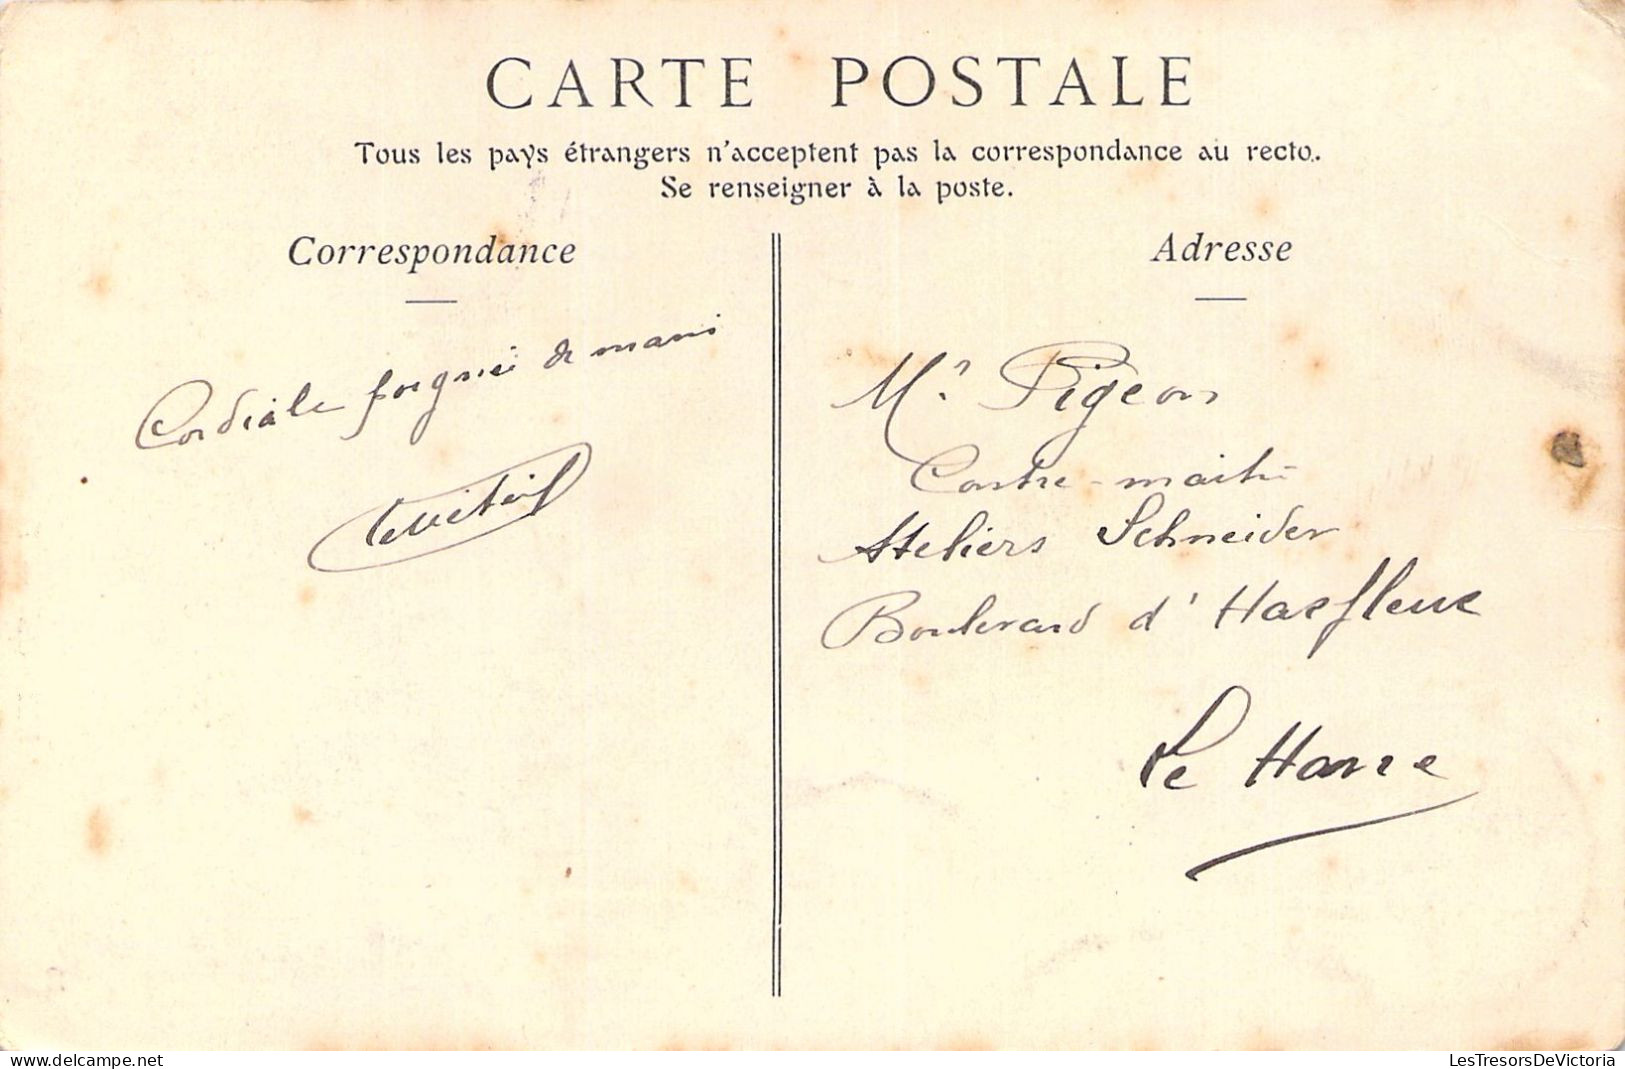 CARTE POSTALE
Tous les pays étrangers n'acceptent pas la correspondance au recto.
Se renseigner à la poste.
Correspondance
Adresse
Cordiale poignée de main
Mr Pigeon
Contre-maître
Ateliers Schneider
Boulevard d'Harfleur
Le Havre
www.delcampe.net
LesTresorsDeVictoria